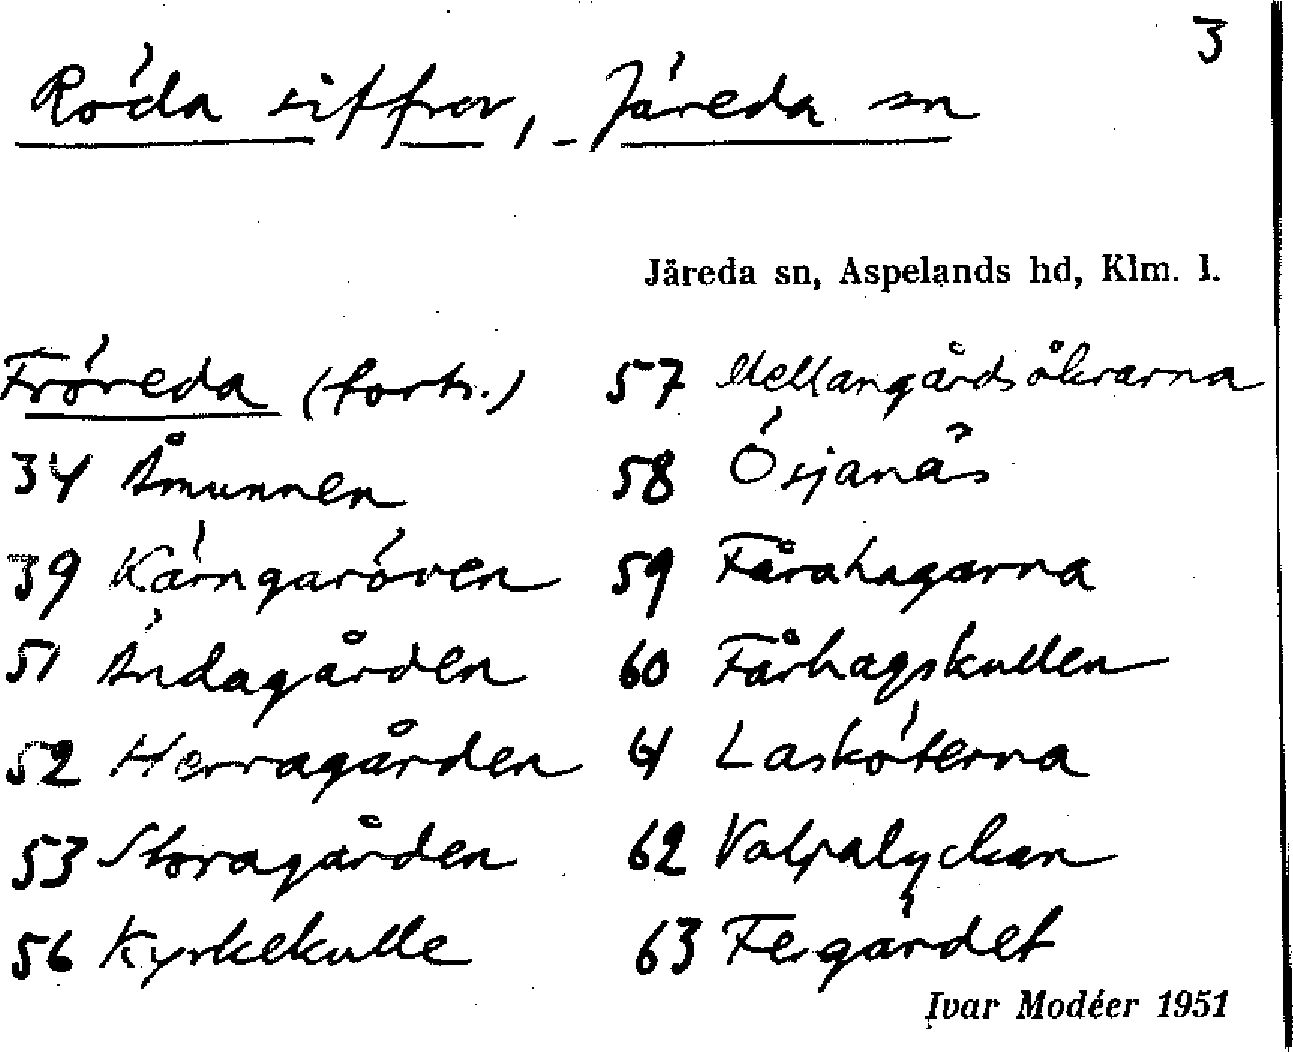 3
Röda siffror, Järeda sn
Järeda sn, Aspelands hd, Klm. l.
Fröreda (forts.)
34 Åmunnen
39 Kärngaröven
51 Ändagården
52 Herragården
53 Storagården
56 Kyrkekulle
57 Mellangårdsåkrarna
58 Ösjanäs
59 Fårahagarna
60 Fårhagskullen
61 Lasköterna
62 Valpalyckan
63 Fegärdet
Ivar Modéer 1951